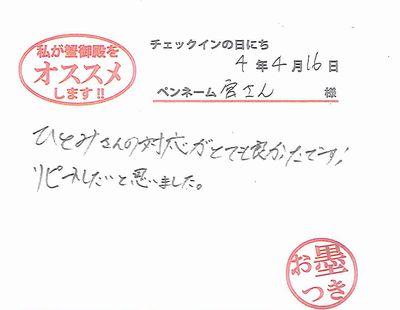 私が蟹御殿を
オススメ
します!!
チェックインの日にち
4年4月16日
ペンネーム 宮さん 様
ひとみさんの対応がとても良かったです!
リピートしたいと思いました。
お墨
つき